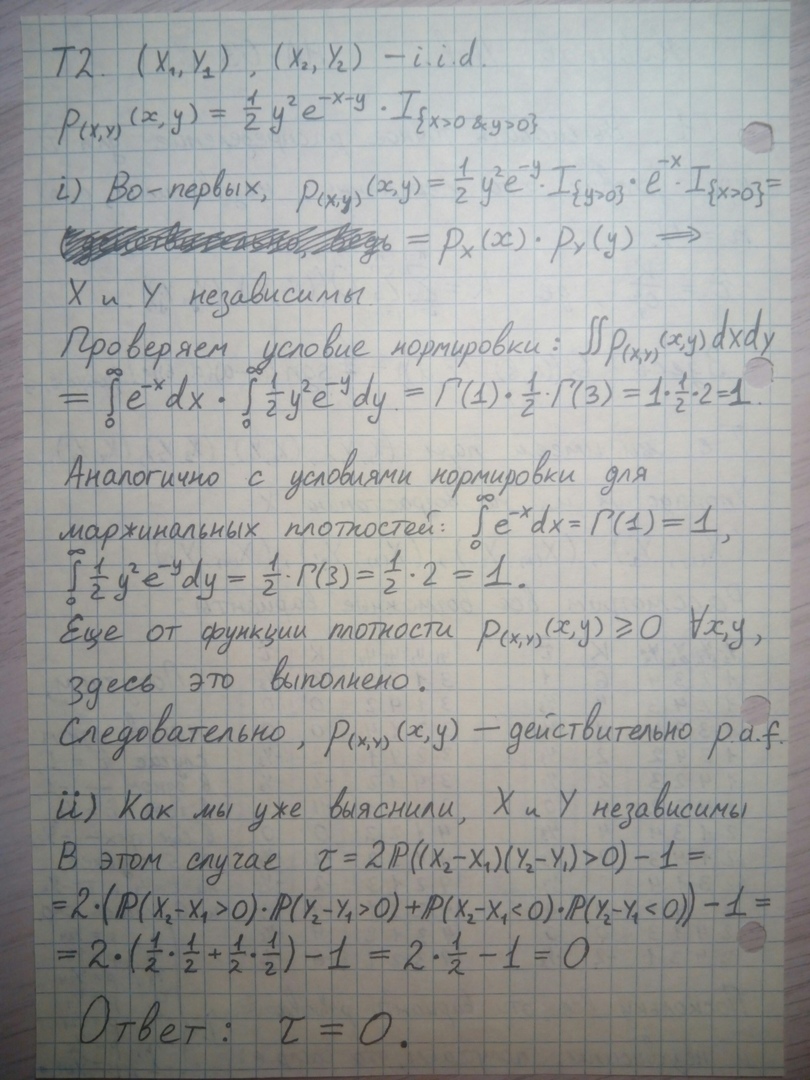 T2. (X₁, Y₁), (X₂, Y₂) – i.i.d.
p₍X,Y₎(x,y) = 1/2 y² e^{-x-y} · I_{{x>0 & y>0}}
i) Во-первых, p₍X,Y₎(x,y) = 1/2 y² e^{-y} · I_{{y>0}} · e^{-x} · I_{{x>0}} =
= p_X(x) · p_Y(y) ⟹
X и Y независимы.
Проверяем условие нормировки: ∬p₍X,Y₎(x,y)dxdy
= ∫₀^∞ e^{-x}dx · ∫₀^∞ 1/2 y² e^{-y}dy = Γ(1) · 1/2 · Γ(3) = 1 · 1/2 · 2 = 1.
Аналогично с условиями нормировки для
маржинальных плотностей: ∫₀^∞ e^{-x}dx = Γ(1) = 1,
∫₀^∞ 1/2 y² e^{-y}dy = 1/2 · Γ(3) = 1/2 · 2 = 1.
Еще от функции плотности p₍X,Y₎(x,y) ⩾ 0 ∀x,y,
здесь это выполнено.
Следовательно, p₍X,Y₎(x,y) – действительно p.d.f.
ii) Как мы уже выяснили, X и Y независимы
В этом случае τ = 2ℙ((X₂-X₁)(Y₂-Y₁)>0) - 1 =
= 2·(ℙ(X₂-X₁>0)·ℙ(Y₂-Y₁>0)+ℙ(X₂-X₁<0)·ℙ(Y₂-Y₁<0)) - 1 =
= 2·(1/2 · 1/2 + 1/2 · 1/2) - 1 = 2 · 1/2 - 1 = 0
Ответ: τ = 0.